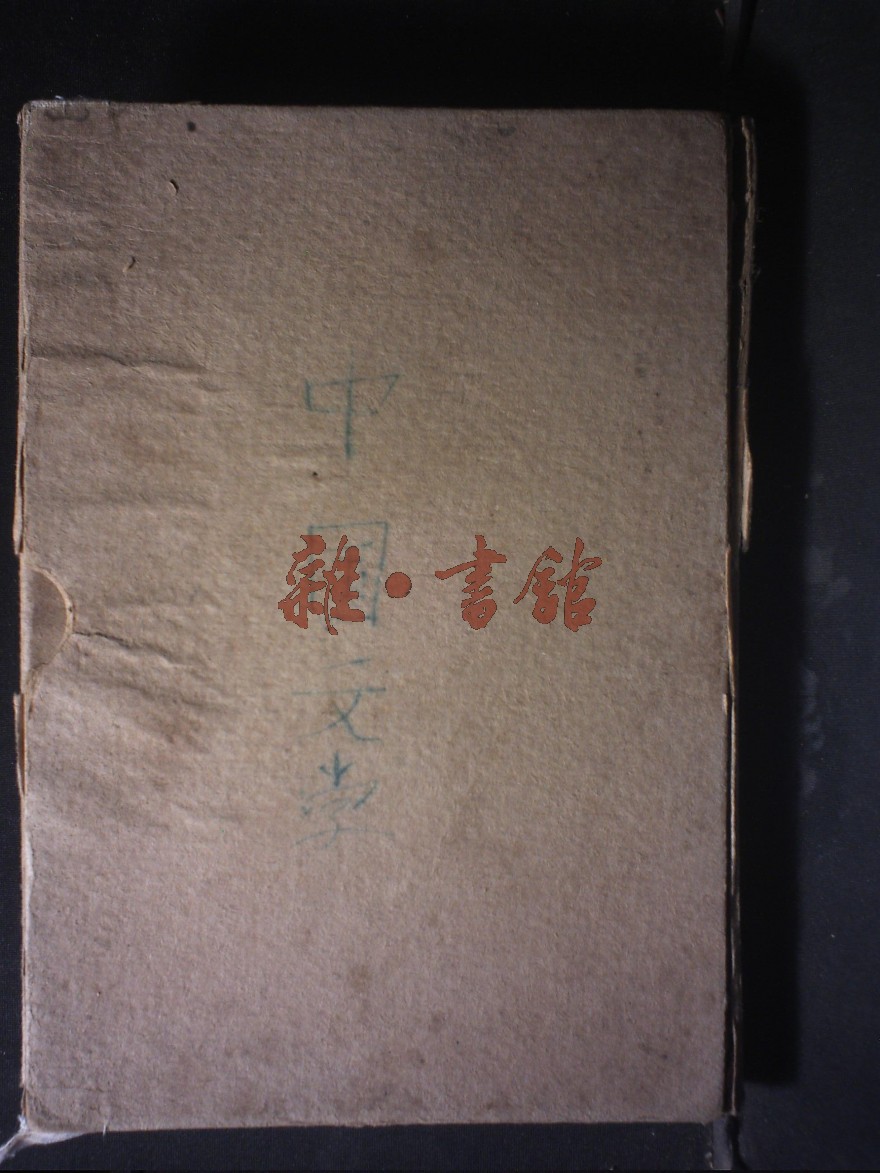 中国文学
雜·書舘